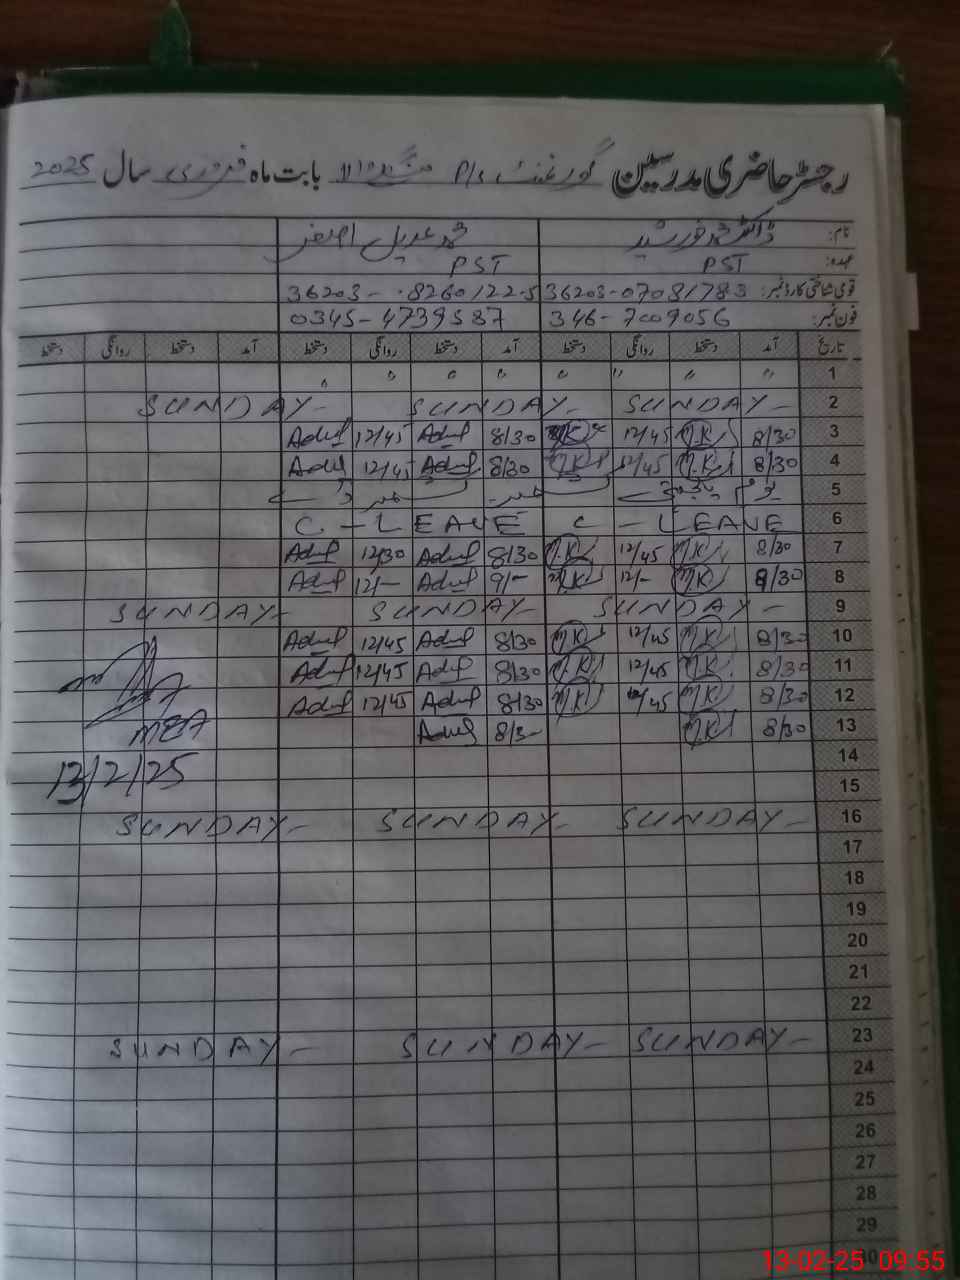 رجسٹر حاضری مدرسین گورنمنٹ P/s بابت ماہ فروری سال 2025
نام: ڈاکٹر محمد خورشید محمد عدیل اصغر
عہدہ: PST PST
قومی شناختی کارڈ نمبر: 36203-07081783 36203-08260122-5
فون نمبر: 346-7009056 0345-4739587
تاریخ آمد دستخط روانگی دستخط آمد دستخط روانگی دستخط آمد دستخط روانگی دستخط
1 " " " " " " " "
2 SUNDAY- SUNDAY- SUNDAY-
3 8/30 M.K 12/45 M.K 8/30 Adeel 12/45 Adeel
4 8/30 M.K 12/45 M.K 8/30 Adeel 12/45 Adeel
5 یوم یکجہتی کشمیر
6 C - LEAVE C. - LEAVE
7 8/30 M.K 12/45 M.K 8/30 Adeel 12/30 Adeel
8 8/30 M.K 12/- M.K 9/- Adeel 12/- Adeel
9 SUNDAY- SUNDAY- SUNDAY-
10 8/30 M.K 12/45 M.K 8/30 Adeel 12/45 Adeel
11 8/30 M.K 12/45 M.K 8/30 Adeel 12/45 Adeel
12 8/30 M.K 12/45 M.K 8/30 Adeel 12/45 Adeel
13 8/30 M.K 8/3- Adeel MEA
14 13/2/25
15
16 SUNDAY- SUNDAY- SUNDAY-
17
18
19
20
21
22
23 SUNDAY- SUNDAY- SUNDAY-
24
25
26
27
28
29
30
13-02-25 09:55